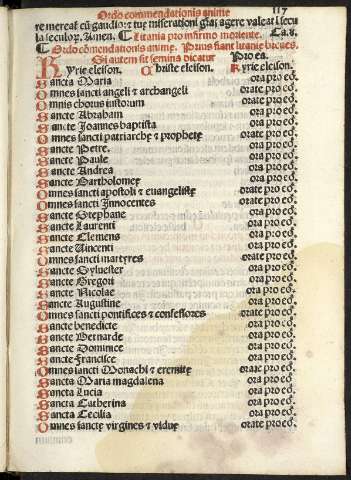 Ordo commendationis anime 117
re mereat cū gaudio: tuę miserationi gr̄as agere valeat. Per secu
la seculoꝝ. Amen. ¶ Litania pro infirmo moriente. Ca. 8.
¶ Ordo cōmendationis animę. Primo fiant litanię breues.
Si autem sit femina dicatur Pro ea.
Kyrie eleison. Christe eleison. Kyrie eleison.
Sancta Maria ora pro eo.
Omnes sancti angeli & archangeli orate pro eo.
Omnis chorus iustorum orate pro eo.
Sancte Abraham ora pro eo.
Sancte Joannes baptista ora pro eo.
Omnes sancti patriarchę & prophetę orate pro eo.
Sancte Petre. ora pro eo.
Sancte Paule ora pro eo.
Sancte Andrea ora pro eo.
Sancte Bartholomeę ora pro eo.
Omnes sancti apostoli & euangelistę orate pro eo.
Omnes sancti Innocentes orate pro eo.
Sancte Stephane ora pro eo.
Sancte Laurenti ora pro eo.
Sancte Clemens ora pro eo.
Sancte Vincenti ora pro eo.
Omnes sancti martyres orate pro eo.
Sancte Syluester ora pro eo.
Sancte Gregori ora pro eo.
Sancte Nicolae ora pro eo.
Sancte Augustine ora pro eo.
Omnes sancti pontifices & confessores orate pro eo.
Sancte benedicte ora pro eo.
Sancte Bernarde ora pro eo.
Sancte Dominice ora pro eo.
Sancte Francisce ora pro eo.
Omnes sancti Monachi & eremitę orate pro eo.
Sancta Maria magdalena ora pro eo.
Sancta Lucia ora pro eo.
Sancta Catherina ora pro eo.
Sancta Cecilia ora pro eo.
Omnes sanctę virgines & viduę orate pro eo.